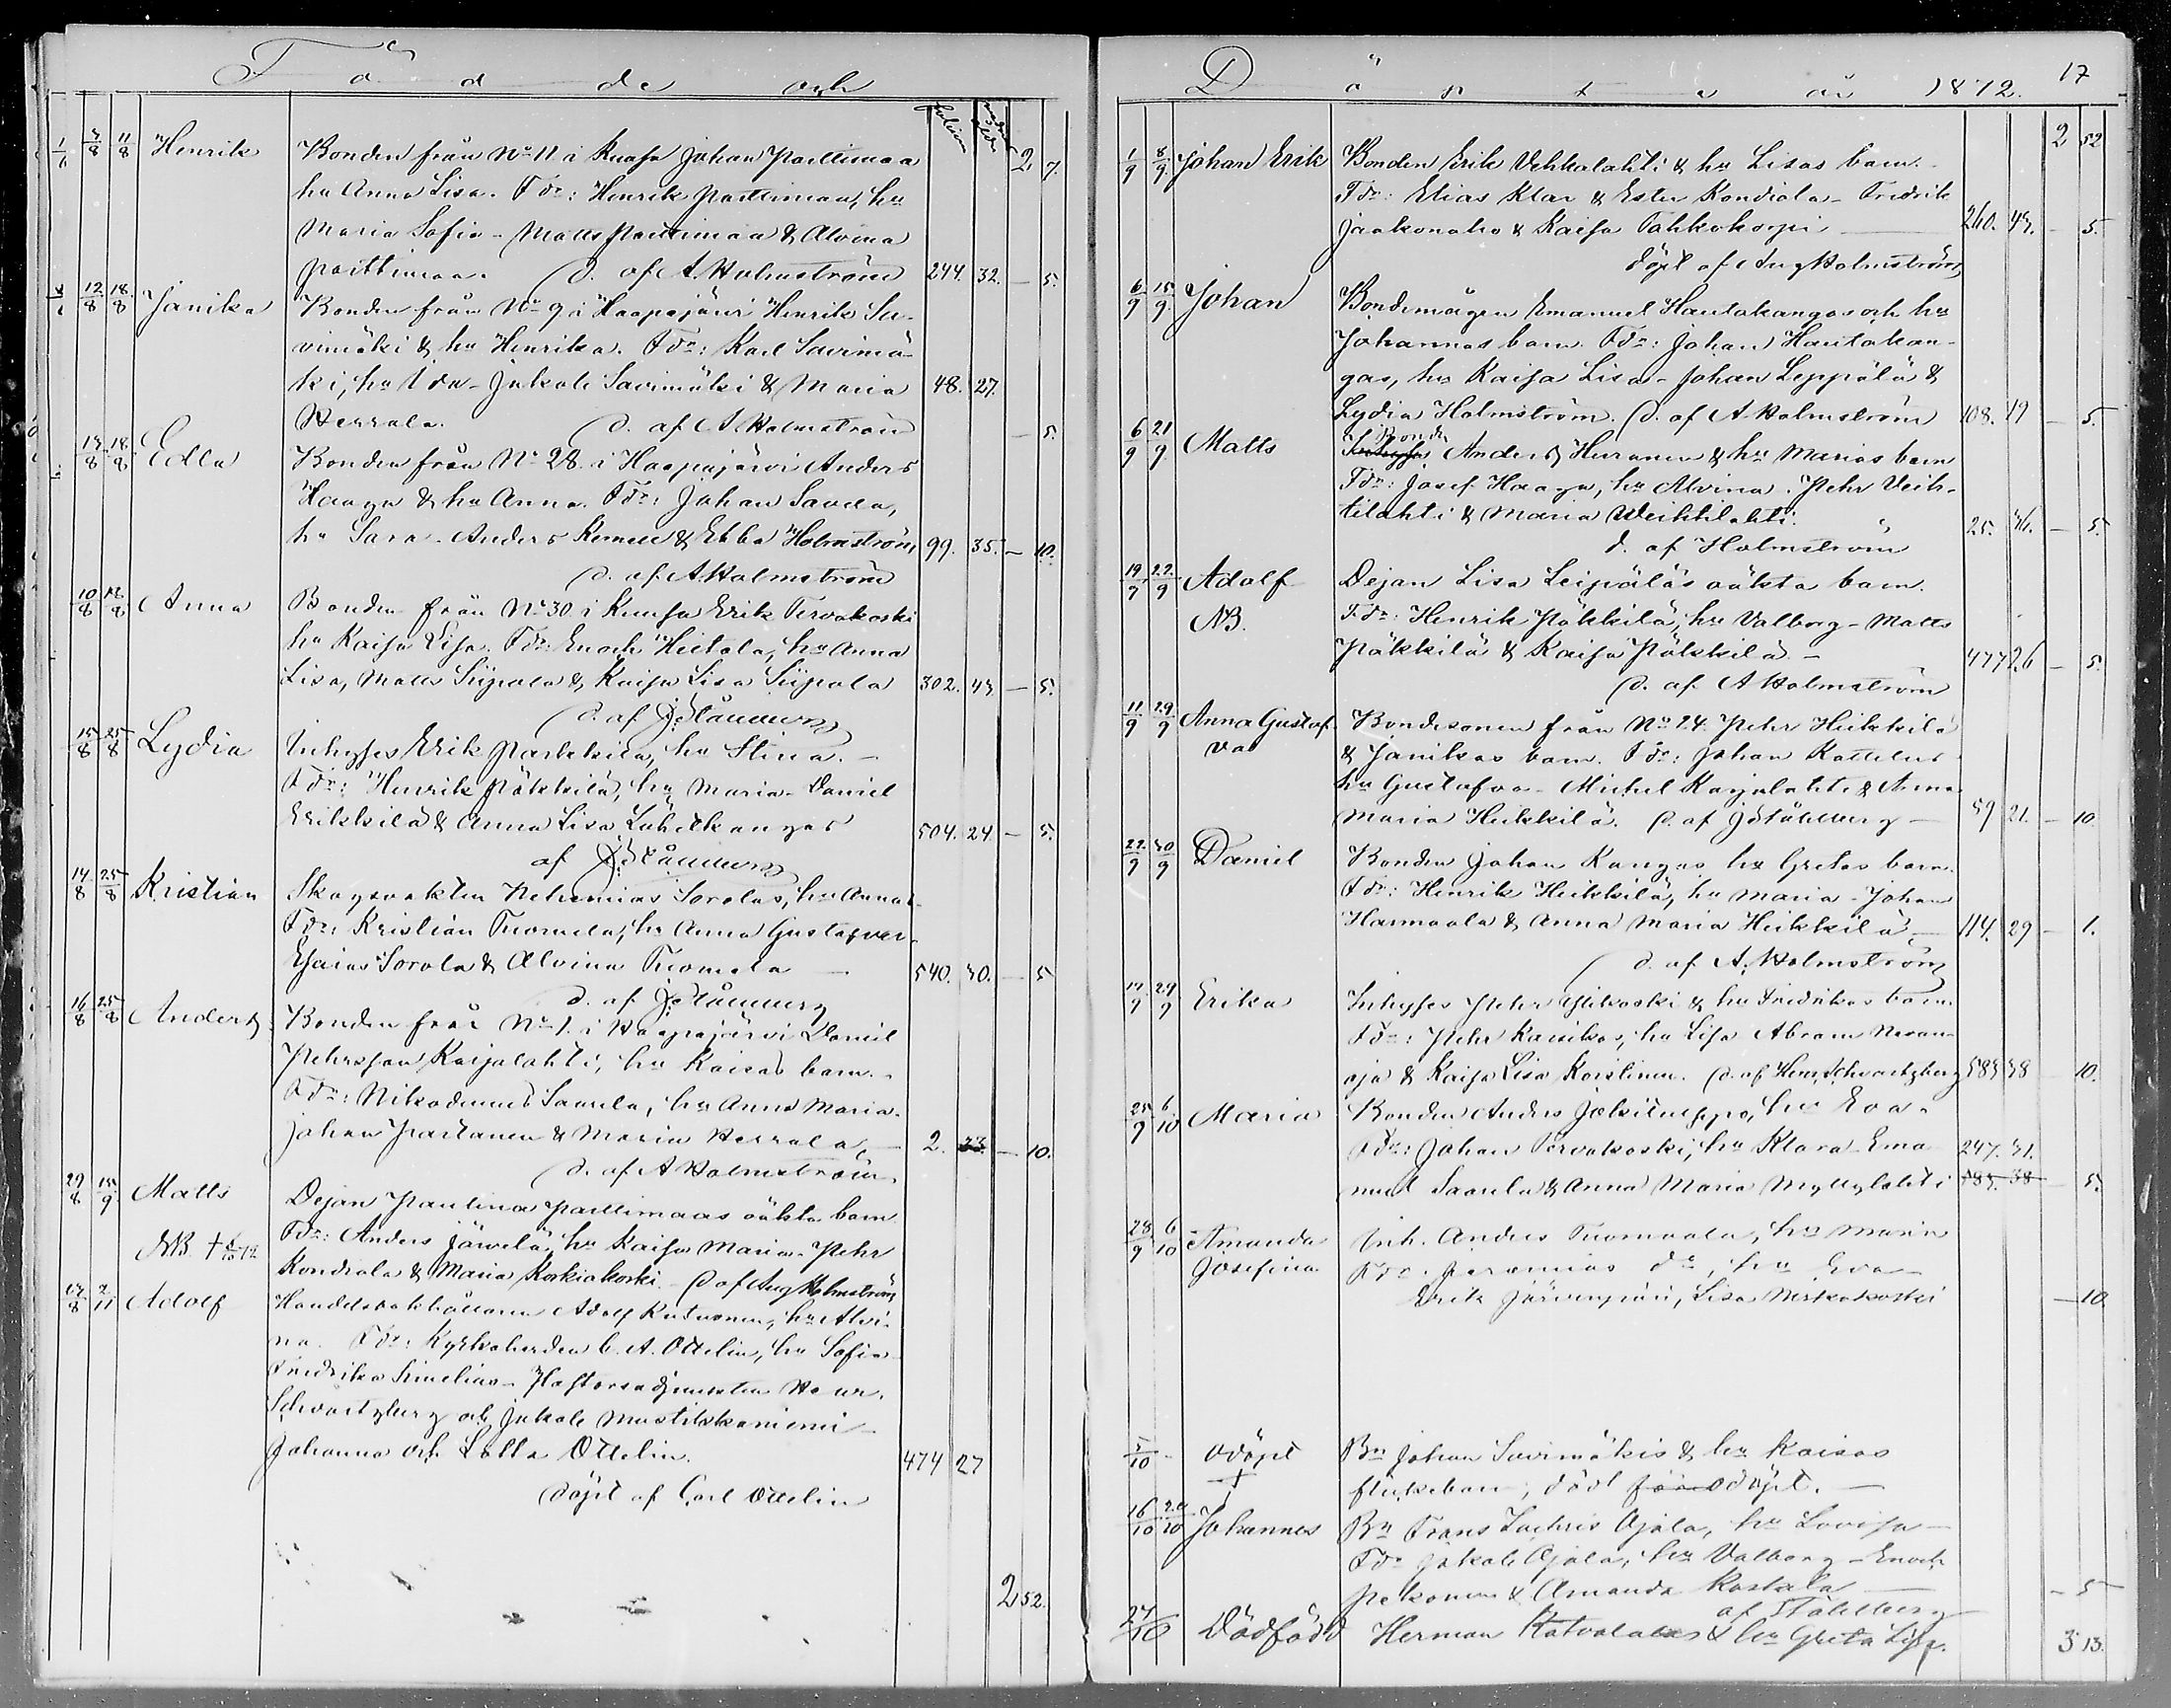 Födde och
2 7.
1/6 4/8 11/8 Henrik Bonden från No 11 i Kuusa Johan Parttimaa
hu Anna Lisa. Fdr: Henrik Parttimaa, hu
Maria Sofia - Matts Parttimaa & Alvina
Parttimaa. d. af A. Holmström 244. 32. - 5.
12/8 18/8 Janika Bonden från No 9 i Haapajärvi Henrik Sa-
vimäki & hu Henrika. Fdr: Karl Savimä-
ki, hu Ida - Jakob Savimäki & Maria 48. 27.
Herrala. d. af A Holmström - 5.
14/8 18/8 Edla Bonden från No 28 i Haapajärvi Anders
Haaga & hu Anna. Fdr: Johan Savela,
hu Sara - Anders Remell & Ebba Holmström 99. 35. - 10.
d. af A Holmström
10/8 18/8 Anna Bonden från No 30 i Kuusa Erik Tervakoski
hu Kaisa Lisa. Fdr: Enoch Hietala, hu Anna
Lisa, Matts Siipola & Kaisa Lisa Siipola 302. 43. - 5.
d. af J Ståhlberg
15/8 25/8 Lydia Inhyses Erik Parkkila, hu Stina. -
Fdr: Henrik Pökkilä, hu Maria - Daniel
Erikkilä & Anna Lisa Lähetkangas 504. 24 - 5.
af J Ståhlberg
14/8 25/8 Kristian Skogvakten Nehemias Sorolas, hu Annas
Fdr: Kristian Tuomela, hu Anna Gustafva
Esaias Sorola & Alvina Tuomela - 540. 30. - 5
d. af J Ståhlberg
16/8 25/8 Anders Bonden från No 1. i Haapajärvi Daniel
Pehrsson Karjalahti, hu Kaisas barn.
Fdr: Nikodemus Saarela, hu Anna Maria.
Johan Partanen & Maria Herrala, 2. 33. - 10.
d. af A Holmström
29/8 15/9 Matts Dejan Paulina Parttimaas oäkta barn
NB. † Fdr: Anders Järvelä, hu Kaisa Maria - Pehr
Kondrala & Maria Korkiakoski. - d af Aug Holmström
2/11 Adolf Handelsbokhållaren Adolf Kutvonen, hu Alvi-
na. Fdr: Kyrkoherden C. A. Ottelin, hu Sofia
Fredrika Simelius - Pastorsadjunkten Henr.
Schvartzberg och Jakob Mustikkaniemi -
Johanna och Lolla Ottelin. 474 27
döpt af Carl Ottelin
2 52.
Döpte år 1872. 17
2 52
1/9 8/9 Johan Erik Bonden Erik Vehkalahti & hu Lisas barn.
Fdr: Elias Klar & Ester Kondrala - Fredrik
Jaakonaho & Kaisa Tahkokorpi - 260. 43. - 5.
döpt af Aug Holmström
6/9 15/9 Johan Bondemågen Emanuel Hautakangas och hu
Johannas barn. Fdr: Johan Hautakan-
gas, hu Kaisa Lisa - Johan Leppälä &
Lydia Holmström. d. af A Holmström 108. 19 - 5.
6/9 21/9 Matts Bonde Anders Huranen & hu Marias barn
Fdr: Josef Haaga, hu Alvina. Pehr Veih-
tilahti & Maria Weihtilahti. 25. 36. - 5.
d. af Holmström
19/9 22/9 Adolf Dejan Lisa Leipäläs oäkta barn.
NB. Fdr: Henrik Pökkilä, hu Valborg - Matts
Pökkilä & Kaisa Pökkilä - 477 26 - 5.
d. af A Holmström
11/9 29/9 Anna Gustaf- Bondesonen från No 24. Pehr Heikkilä
va & Janikas barn. Fdr: Johan Kattelus
hu Gustafva - Michel Karjalahti & Anna
Maria Heikkilä. d. af J Ståhlberg - 59 21. - 10.
22/9 30/9 Daniel Bonden Johan Kangas hu Gretas barn.
Fdr: Henrik Heikkilä, hu Maria - Johan
Harmaala & Anna Maria Heikkilä - 114. 29 - 1.
d. af A. Holmström
29/9 Erika Inhyses Pehr Ylikoski & hu Fredrikas barn
Fdr: Pehr Karsikas, hu Lisa Abram Nevan-
oja & Kaisa Lisa Korslinen. d. af Henr Schvartzberg 585 38 10.
25/9 6/10 Maria Bonden Anders Jokitueppo, hu Eva.
Fdr: Johan Tervakoski, hu Klara - Ema 247. 31.
nuel Saarela & Anna Maria Myllylahti 585. 38 - 5.
28/9 6/10 Amanda Inh. Anders Tuomaala, hu Maria
Josefina Fdr. Jeremias do, hu Eva -
Erik Järvenpää, Lisa Niskakoski - 10
5/10 - odöpt Bn Johan Savimäkis & hu Kaisas
† flickebarn, död för odöpt. -
16/10 20/10 Johannes Bn Frans Zachris Ojala, hu Lovisa -
Fdr Jakob Ojala, hu Valborg - Enoch
Pekonen & Amanda Kostala - - 5
af Ståhlberg
27/10 Dödfödd Herman Katvalas & hu Greta Lisa.
3 13.